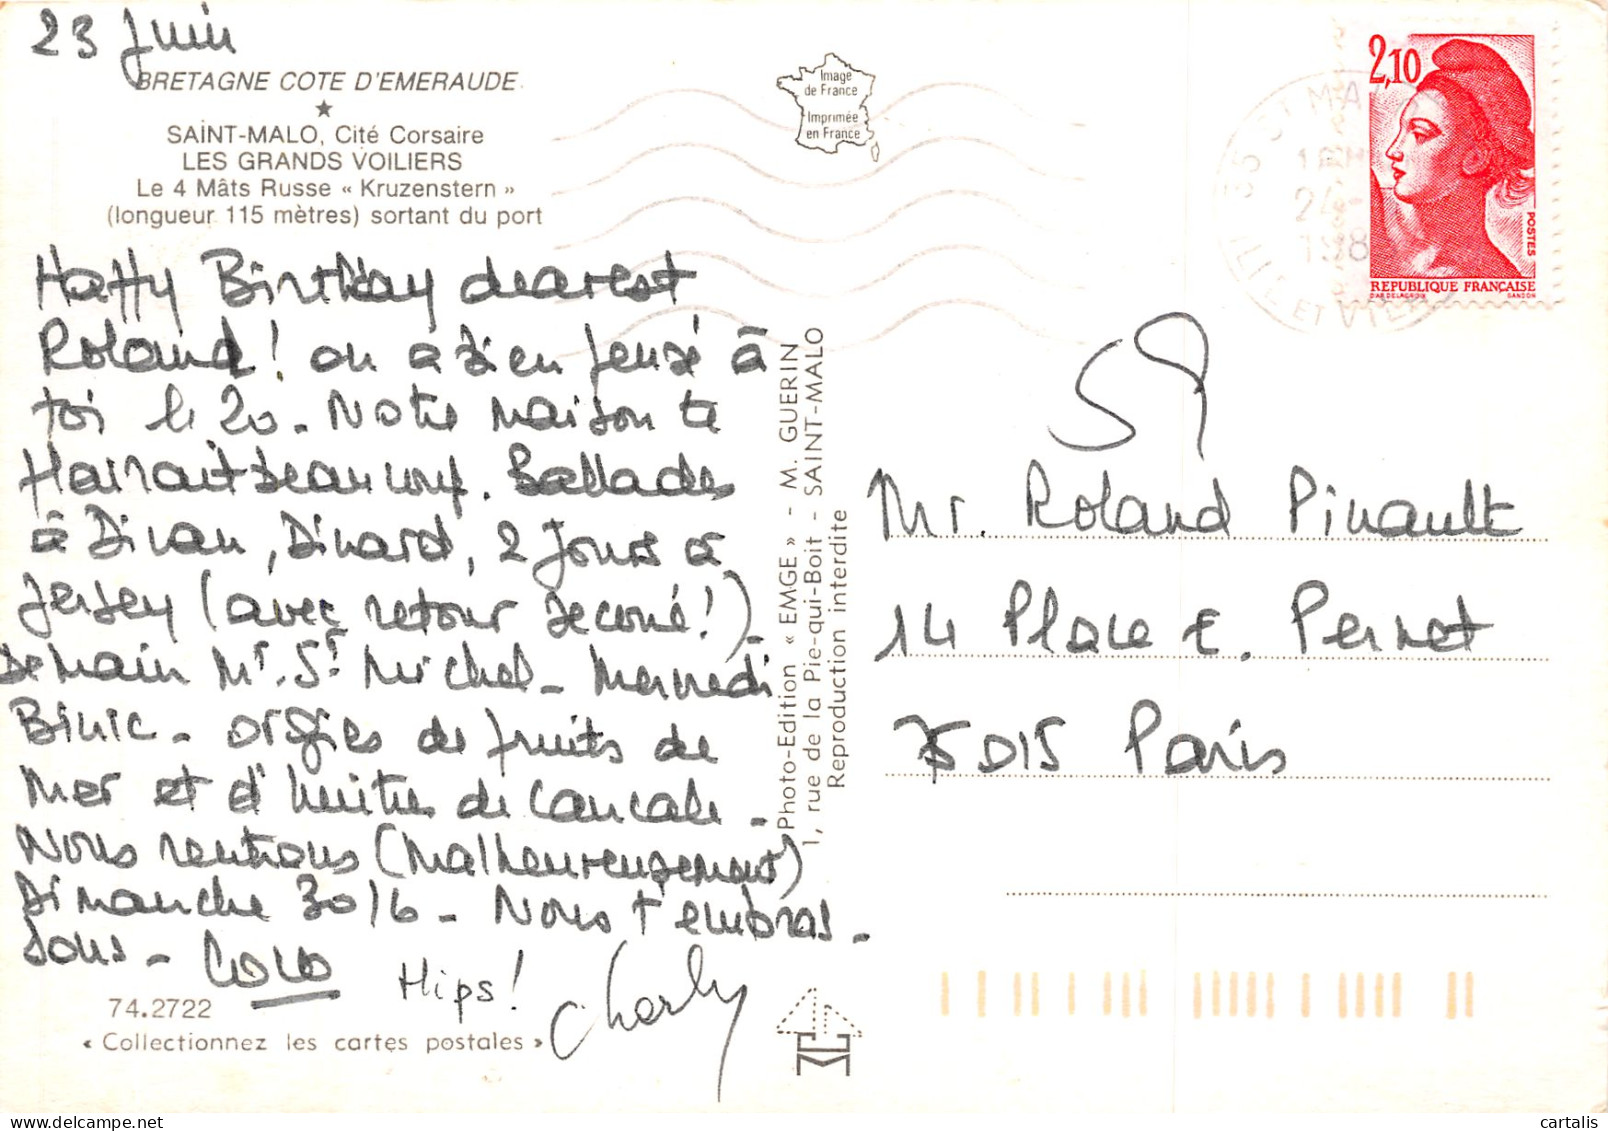 23 Juin
BRETAGNE COTE D'EMERAUDE
SAINT-MALO, Cité Corsaire
LES GRANDS VOILIERS
Le 4 Mâts Russe « Kruzenstern »
(longueur 115 mètres) sortant du port
Happy Birthday dearest
Roland! on a bien pensé à
toi le 20. Notre maison te
plairait beaucoup. Ballades
à Dinan, Dinard, 2 jours à
Jersey (avec retour secoué!).
Demain Mt. St Michel - Mercredi
Binic - orgies de fruits de
Mer et d'huitres de Cancale -
Nous rentrons (Malheureusement)
Dimanche 30/6 - Nous t'embras-
sons - Coco
Hips!
Charly
74.2722
« Collectionnez les cartes postales »
Image
de France
Imprimée
en France
Photo-Edition « EMGE » - M. GUERIN
1, rue de la Pie-qui-Boit - SAINT-MALO
Reproduction interdite
2,10
POSTES
REPUBLIQUE FRANÇAISE
D'AP. DELACROIX GANDON
35 ST MA
24
198
ILLE ET VIL
Mr. Roland Pinault
14 Place E. Pernet
75015 Paris
delcampe.net
coco42